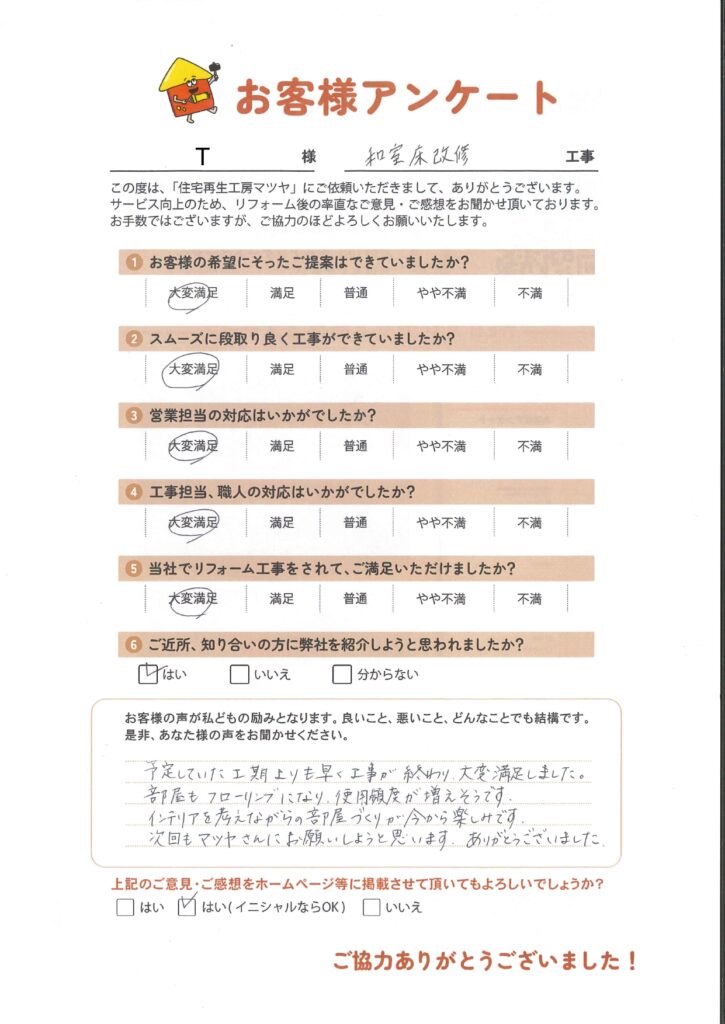 お客様アンケート
T 様 和室床改修 工事
この度は、「住宅再生工房マツヤ」にご依頼いただきまして、ありがとうございます。
サービス向上のため、リフォーム後の率直なご意見・ご感想をお聞かせ頂いております。
お手数ではございますが、ご協力のほどよろしくお願いいたします。
1 お客様の希望にそったご提案はできていましたか?
大変満足 満足 普通 やや不満 不満
2 スムーズに段取り良く工事ができていましたか?
大変満足 満足 普通 やや不満 不満
3 営業担当の対応はいかがでしたか?
大変満足 満足 普通 やや不満 不満
4 工事担当、職人の対応はいかがでしたか?
大変満足 満足 普通 やや不満 不満
5 当社でリフォーム工事をされて、ご満足いただけましたか?
大変満足 満足 普通 やや不満 不満
6 ご近所、知り合いの方に弊社を紹介しようと思われましたか?
はい いいえ 分からない
お客様の声が私どもの励みとなります。良いこと、悪いこと、どんなことでも結構です。
是非、あなた様の声をお聞かせください。
予定していた工期よりも早く工事が終わり、大変満足しました。
部屋もフローリングになり、使用頻度が増えそうです。
インテリアを考えながらの部屋づくりが今から楽しみです。
次回もマツヤさんにお願いしようと思います。ありがとうございました。
上記のご意見・ご感想をホームページ等に掲載させて頂いてもよろしいでしょうか?
はい はい(イニシャルならOK) いいえ
ご協力ありがとうございました!